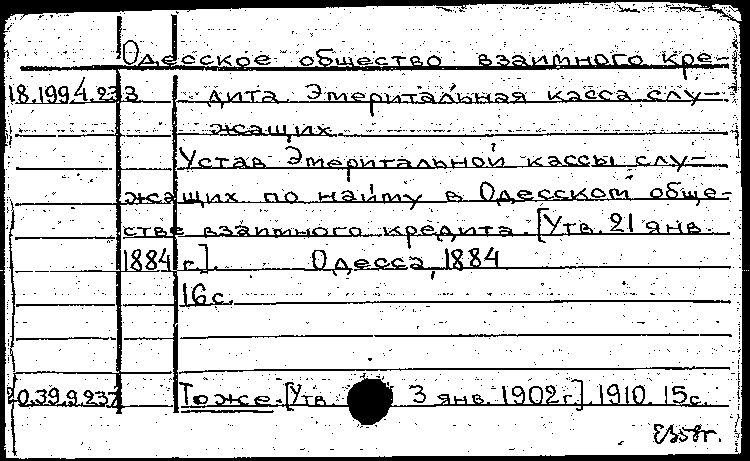 Одесское общество взаимного кре-
18.199.4.233 дита. Эмеритальная касса слу-
жащих.
Устав Эмеритальной кассы слу-
жащих по найму в Одесском обще-
стве взаимного кредита. [Утв. 21 янв.
1884 г.]. Одесса, 1884
16 с.
20.39.9.237 Тоже. [Утв. 3 янв. 1902 г.]. 1910. 15 с.